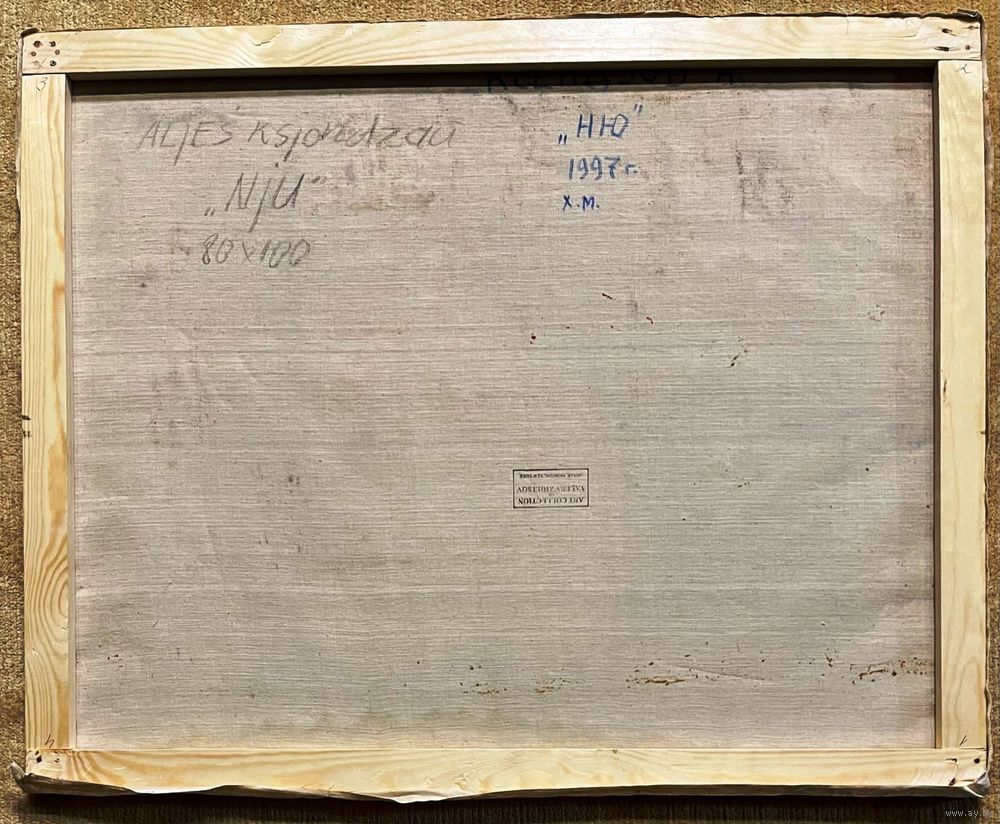 ALJES Ksjondzau
„NjU“
80x100
„НЮ"
1997 г.
х.м.
3
2
ART COLLECTION
VALERY ZHILTSOV
4
1